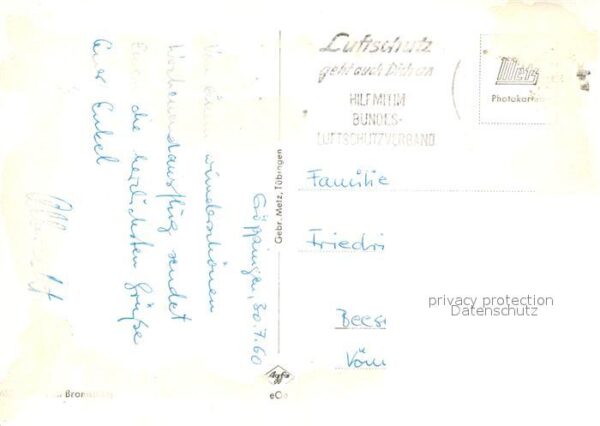 Göppingen, 30.7.60
Von einem wunderschönen
Wochenendausflug sendet
Euch die herzlichsten Grüße
Euer Enkel
Luftschutz
geht auch Dich an
HILF MIT IM
BUNDES-
LUFTSCHUTZVERBAND
Metz
Photokarten
Gebr. Metz, Tübingen
Familie
Friedri
Bees
privacy protection
Datenschutz
Agfa